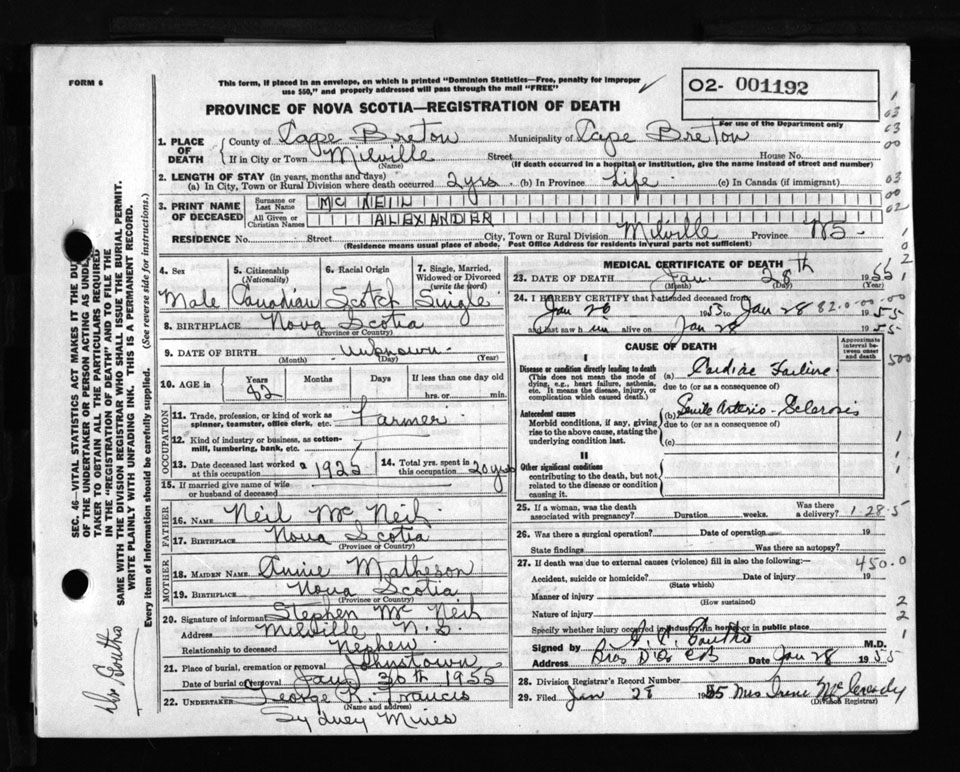 FORM 6
This form, if placed in an envelope, on which is printed "Dominion Statistics—Free, penalty for improper
use $50," and properly addressed will pass through the mail "FREE"
O2- 001192
For use of the Department only
PROVINCE OF NOVA SCOTIA—REGISTRATION OF DEATH
1. PLACE OF DEATH
County of Cape Breton Municipality of Cape Breton
If in City or Town Milville Street House No.
(Name) (If death occurred in a hospital or institution, give the name instead of street and number)
2. LENGTH OF STAY (in years, months and days)
(a) In City, Town or Rural Division where death occurred 2 yrs. (b) In Province Life (c) In Canada (if immigrant)
3. PRINT NAME OF DECEASED
Surname or Last Name MC NEIL
All Given or Christian Names ALEXANDER
RESIDENCE No. Street City, Town or Rural Division Milville Province NS.
(Residence means usual place of abode. Post Office Address for residents in rural parts not sufficient)
4. Sex Male
5. Citizenship (Nationality) Canadian
6. Racial Origin Scotch
7. Single, Married, Widowed or Divorced (write the word) Single
8. BIRTHPLACE Nova Scotia
(Province or Country)
9. DATE OF BIRTH unknown
(Month) (Day) (Year)
10. AGE in Years Months Days If less than one day old
82 hrs. or min.
OCCUPATION
11. Trade, profession, or kind of work as spinner, teamster, office clerk, etc. Farmer
12. Kind of industry or business, as cotton-mill, lumbering, bank, etc.
13. Date deceased last worked at this occupation 1925
14. Total yrs. spent in this occupation 20 yrs
15. If married give name of wife or husband of deceased
FATHER
16. NAME Neil McNeil
17. BIRTHPLACE Nova Scotia
(Province or Country)
MOTHER
18. MAIDEN NAME Annie Matheson
19. BIRTHPLACE Nova Scotia
(Province or Country)
20. Signature of informant Stephen McNeil
Address Milville N.S.
Relationship to deceased Nephew
21. Place of burial, cremation or removal Johnstown
Date of burial or removal Jan 30th 1955
22. UNDERTAKER George R. Francis
(Name and address)
Sydney Mines
MEDICAL CERTIFICATE OF DEATH
23. DATE OF DEATH Jan. 28th 1955
(Month) (Day) (Year)
24. I HEREBY CERTIFY that I attended deceased from
Jan 20 1953 to Jan 28 1955
and last saw h im alive on Jan 28 1955
82.0-00-00
CAUSE OF DEATH
Approximate interval between onset and death
I
Disease or condition directly leading to death
(This does not mean the mode of dying, e.g., heart failure, asthenia, etc. It means the disease, injury, or complication which caused death.)
(a) Cardiac Failure
due to (or as a consequence of)
Antecedent causes
Morbid conditions, if any, giving rise to the above cause, stating the underlying condition last.
(b) Senile Arterio-Sclerosis
due to (or as a consequence of)
(c)
II
Other significant conditions
contributing to the death, but not related to the disease or condition causing it.
25. If a woman, was the death associated with pregnancy? Duration weeks. Was there a delivery?
1-28-5
26. Was there a surgical operation? Date of operation 19
State findings Was there an autopsy?
27. If death was due to external causes (violence) fill in also the following:— 450.0
Accident, suicide or homicide? Date of injury 19
(State which)
Manner of injury
(How sustained)
Nature of injury
Specify whether injury occurred in industry, in home or in public place
Signed by M.D.
Address Bras D'Or CB Date Jan 28 1955
28. Division Registrar's Record Number
29. Filed Jan 1955 Mrs Irene
(Division Registrar)
SEC. 46—VITAL STATISTICS ACT MAKES IT THE DUTY
OF THE UNDERTAKER OR PERSON ACTING AS UNDER-
TAKER TO OBTAIN ALL THE PARTICULARS REQUIRED
IN THE "REGISTRATION OF DEATH" AND TO FILE THE
SAME WITH THE DIVISION REGISTRAR WHO SHALL ISSUE THE BURIAL PERMIT.
WRITE PLAINLY WITH UNFADING INK. THIS IS A PERMANENT RECORD.
Every item of information should be carefully supplied. (See reverse side for instructions.)
03
03
00
03
00
02
500